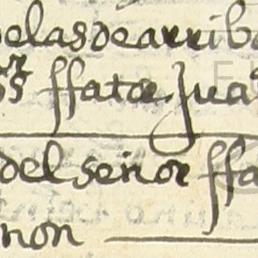 elas de arriba
ffator Jua
del señor ffa
non